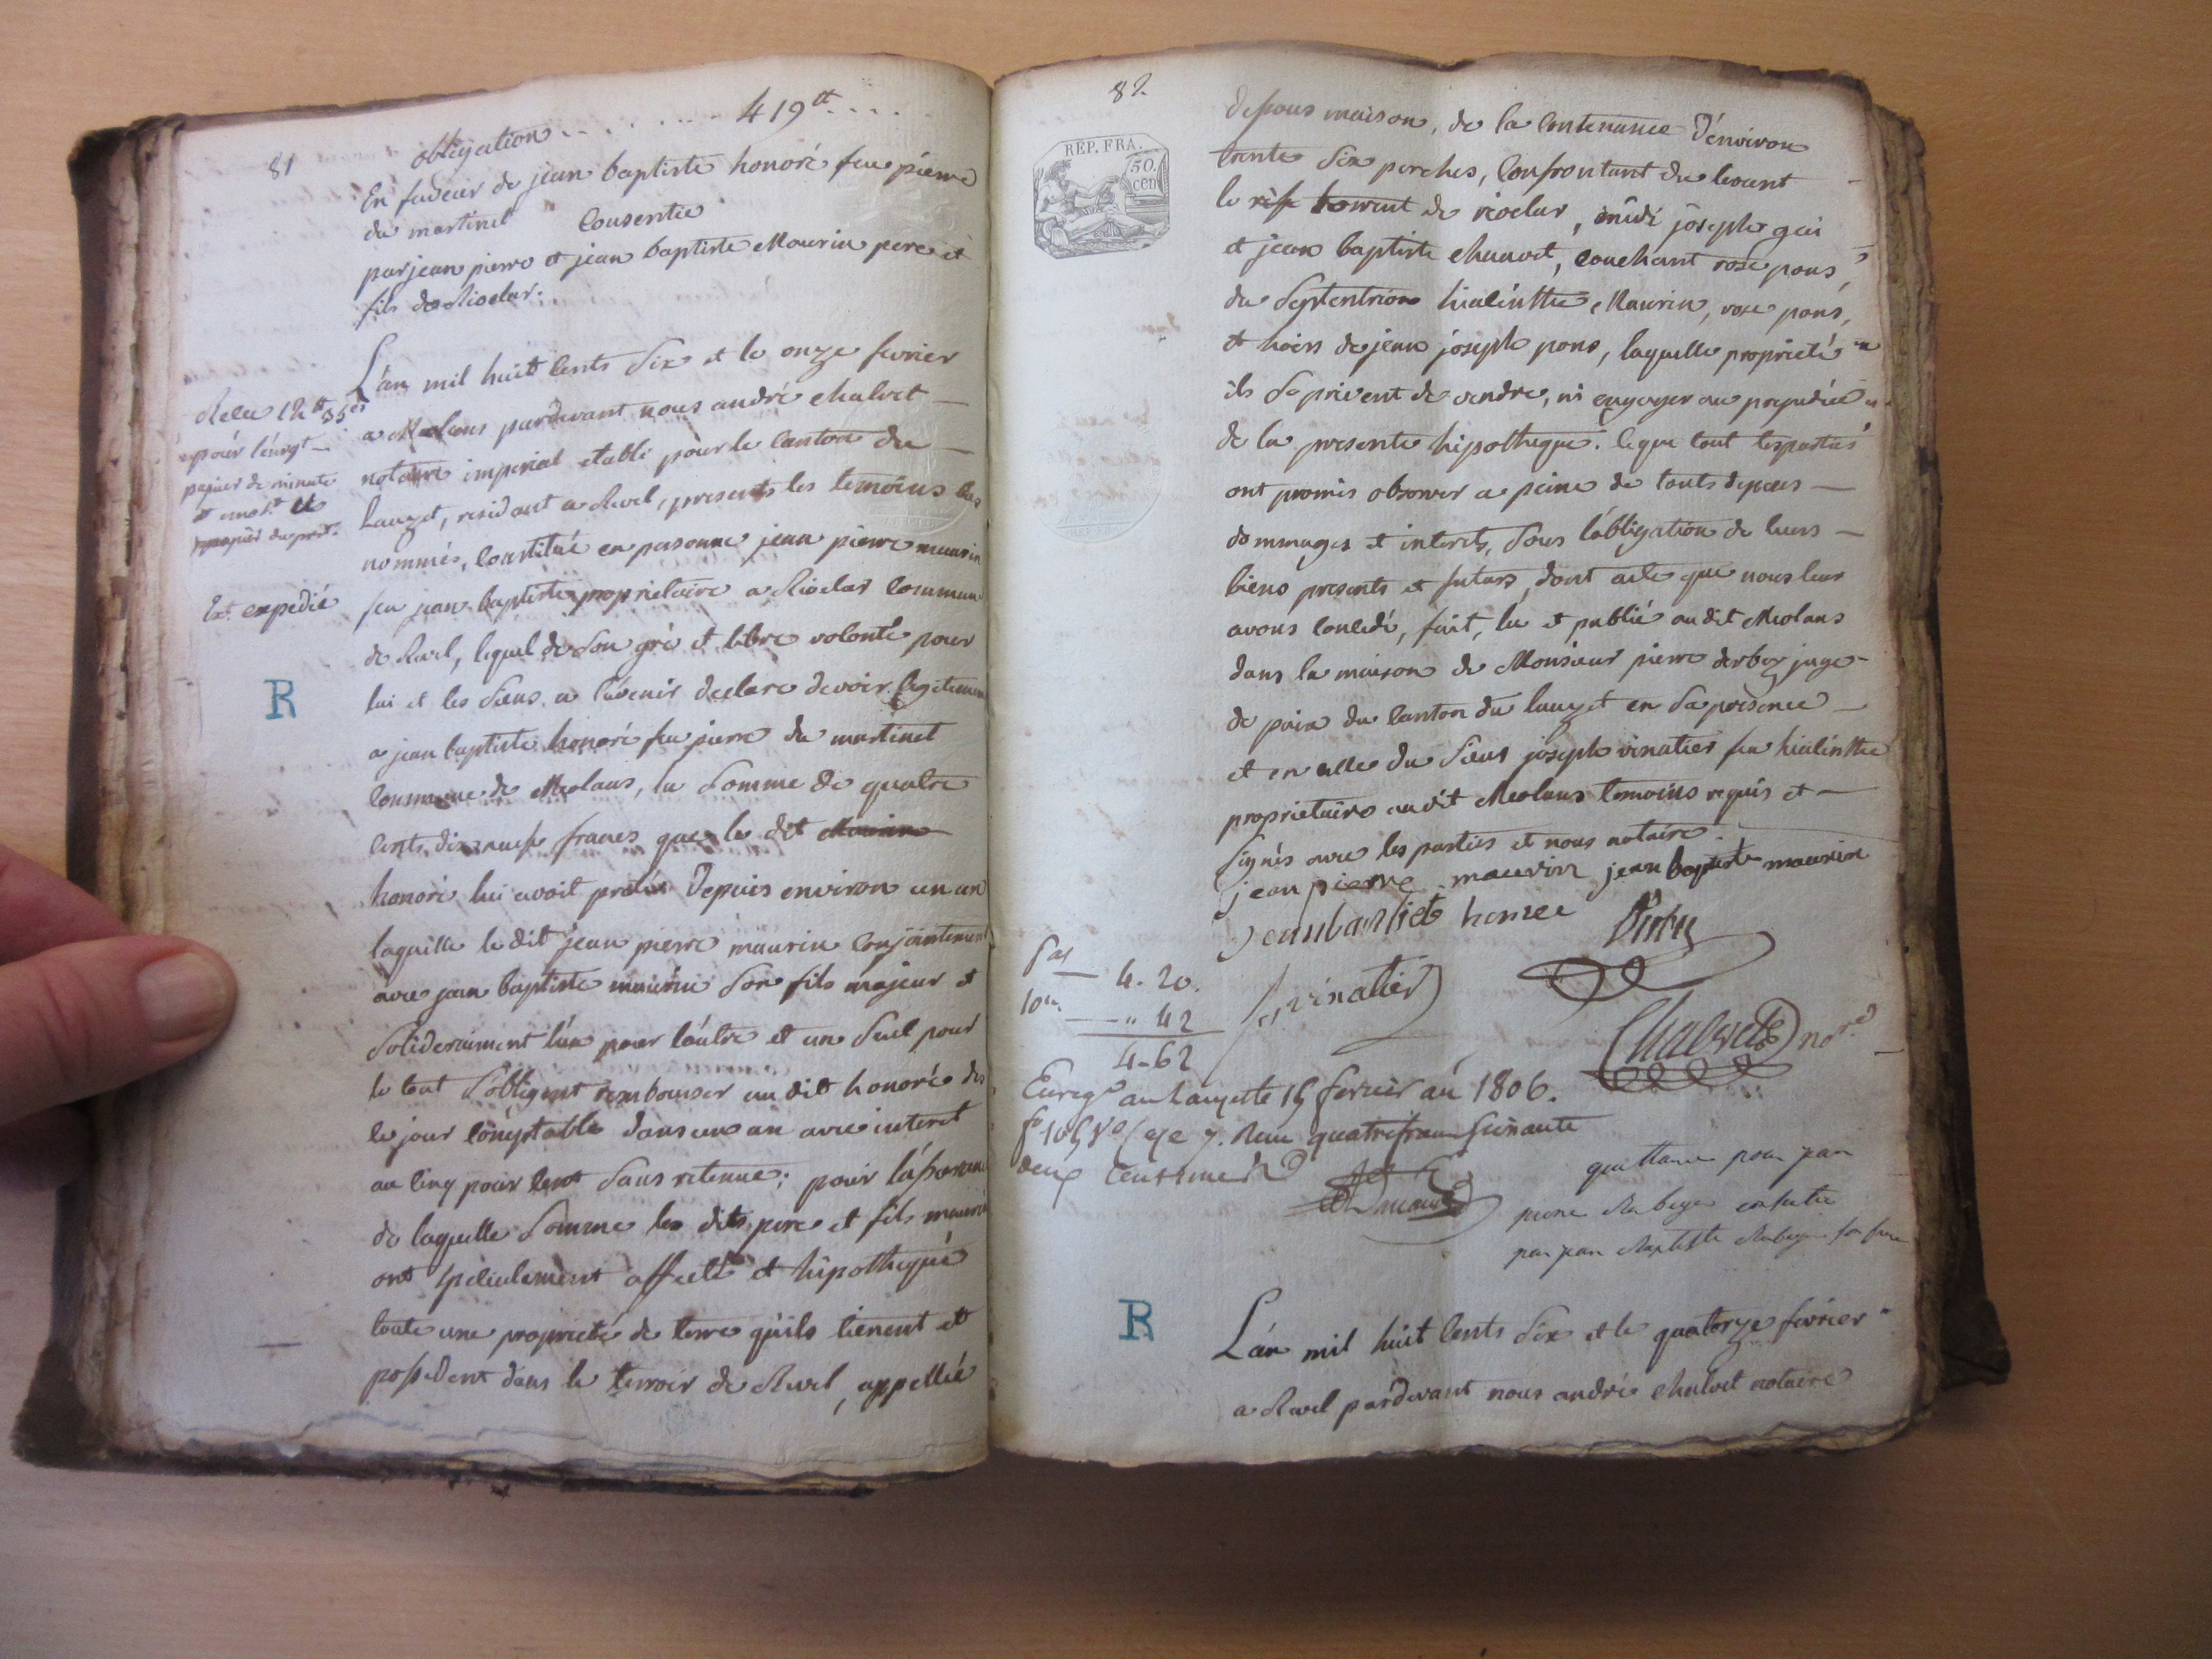 81
obligation . . . . . . . . 419tt . . . .
En faveur de jean baptiste honoré feu pierre
du martinet Consentie
par jean pierre et jean baptiste Maurin pere et
fils de Rioclar.
L'an mil huit cents Six et le onze fevrier
a Meolans pardevant nous andré chalvet —
notaire imperial etabli pour le canton du —
Lauzet, residant a Revel, presents les temoins bas
nommés, Constitué en personne jean pierre maurin
feu jean baptiste proprietaire a Rioclar Commune
de Revel, lequel de Son gré et libre volonté pour
lui et les Siens a l'avenir declare devoir legitimem
a jean baptiste honoré feu pierre du martinet
Commune de Meolans, la Somme de quatre
cents dix neuf francs que le dit Maurin
honoré lui avoit pretée Depuis environ un an
laquelle le dit jean pierre maurin Conjointement
avec jean baptiste maurin Son fils majeur et
Soliderairement l'un pour l'autre et un Seul pour
le tout S'obligent rembourser au dit honoré des
le jour Comptable dans un an avec interet
au cinq pour cent Sans retenue; pour l'assurance
de laquelle Somme les dits pere et fils maurin
ont Specialement affecté et hipothequé
toute une proprieté de terre qu'ils tienent et
possedent dans le terroir de Revel, appellée
Recu 12tt 35cs
pour l'enrgt —
papier de minute
et
papier du
Ext. expedié
R
82
REP. FRA.
50.
cen
dessous maison, de la Contenance d'environ
trente Six perches, Confrontant du levant
le torrent de rioclar, midi joseph gai
et jean baptiste chauvet, couchant rose pons,
du Septentrion hiacinthe Maurin, rose pons,
et hoirs de jean joseph pons, laquelle proprieté
ils Se privent de vendre, ni engager au prejudice
de la presente hipotheque. Ce que tout les parties
ont promis observer a peine de touts depens —
dommages et interets, Sous l'obligation de leurs —
biens presents et futurs, dont acte que nous leur
avons Concedé, fait, lu et publié au dit Meolans
dans la maison de Monsieur pierre derbez juge
de paix du Canton du lauzet en Sa présence —
et en celle du Sieur joseph vinatier feu hiacinthe
proprietaire au dit Meolans temoins requis et —
Signés avec les parties et nous notaire.
jean pierre maurin jean baptiste maurin
jeanbaptiste honore
vinatier
Chalvet nore
4. 20.
10me — " 42
4 - 62
Enregé au Lauzet le 15 fevrier an 1806.
fo 105 Vo Case 7. Recu quatre francs Soixante
deux Centimes
quittance pour jean
pierre Rebeyer consentie
par jean Baptiste Rebeyer son frere
R
L'an mil huit cents Six et le quatorze fevrier
a Revel pardevant nous andré chalvet notaire